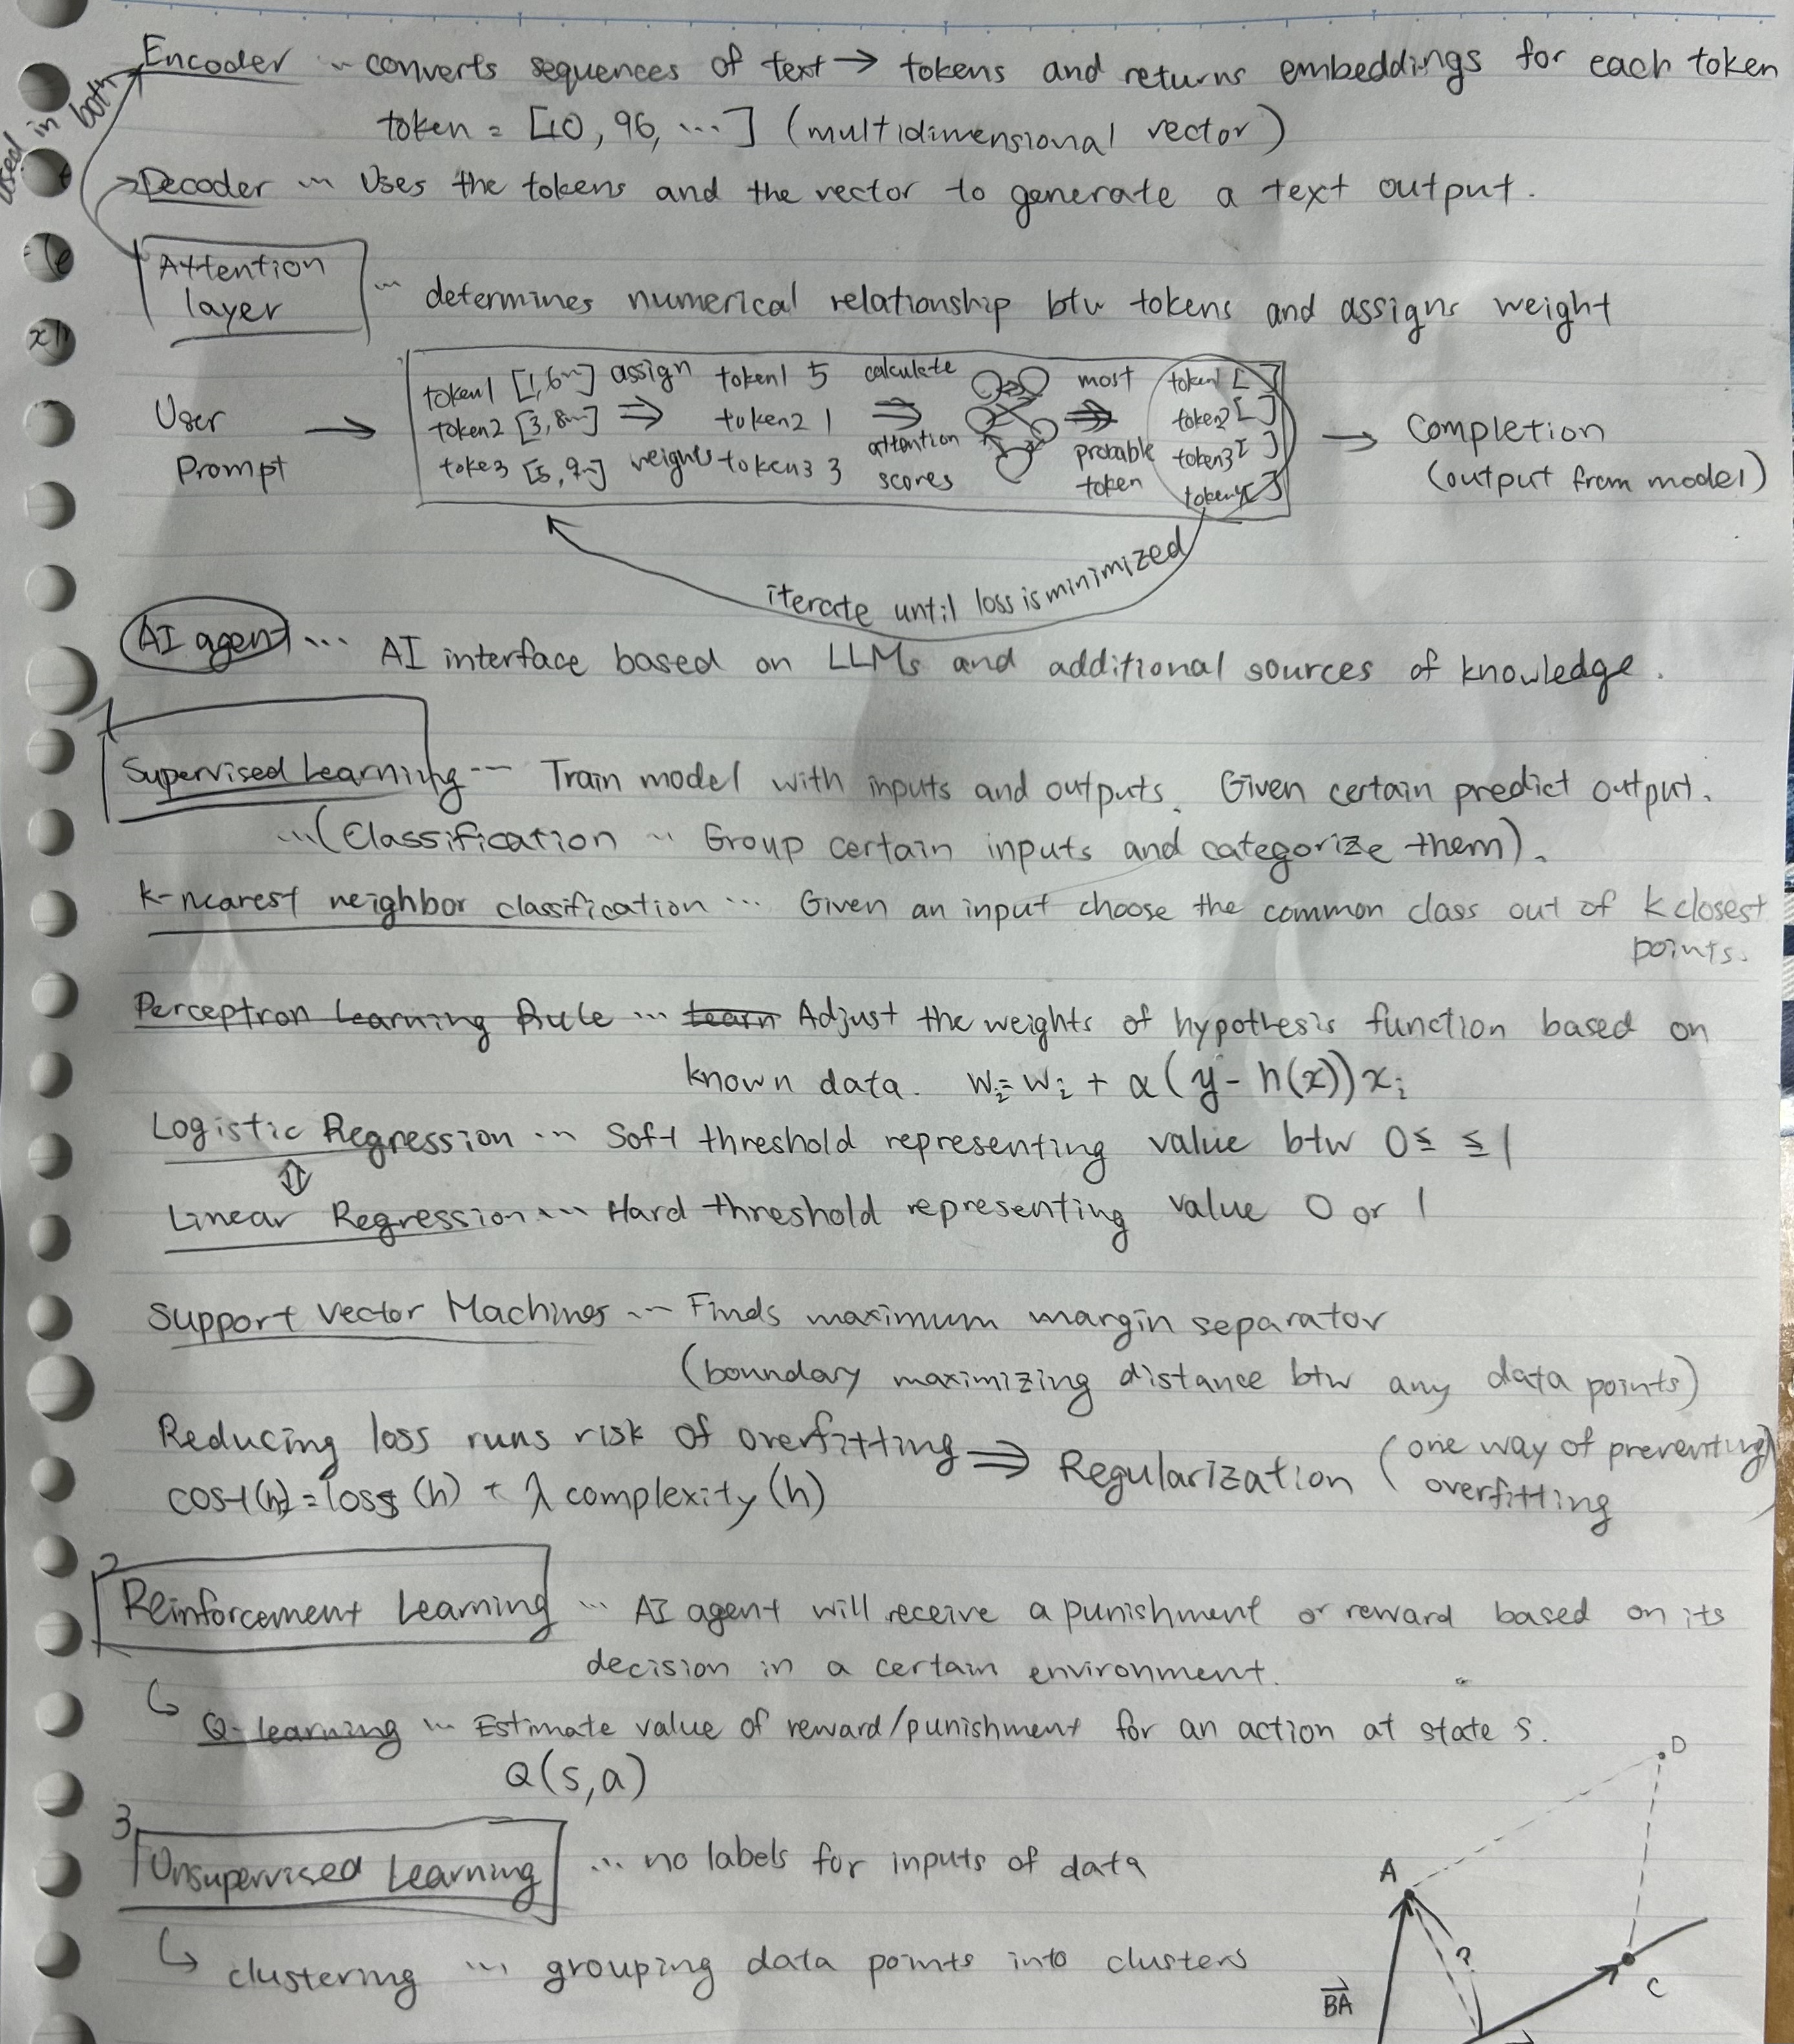 Encoder ... converts sequences of text → tokens and returns embeddings for each token
used in both
token = [10, 96, ...] (multidimensional vector)
Decoder ... Uses the tokens and the vector to generate a text output.
Attention layer ... determines numerical relationship btw tokens and assigns weight
User Prompt →
token1 [1,6~] assign token1 5 calculate most token1 [ ]
token2 [3,8~] ⇒ token2 1 ⇒ ⇒ token2 [ ]
toke3 [5,9~] weights token3 3 attention scores probable token token3 [ ]
token4 [ ]
→ Completion
(output from model)
iterate until loss is minimized
AI agent ... AI interface based on LLMs and additional sources of knowledge.
1
Supervised Learning ... Train model with inputs and outputs. Given certain predict output.
...(Classification ... Group certain inputs and categorize them).
k-nearest neighbor classification ... Given an input choose the common class out of k closest
points.
Perceptron Learning Rule ... learn Adjust the weights of hypothesis function based on
known data. wi = wi + α(y - h(x))xi
Logistic Regression ... Soft threshold representing value btw 0≤ ≤1
⇕
Linear Regression ... Hard threshold representing value 0 or 1
Support Vector Machines ... Finds maximum margin separator
(boundary maximizing distance btw any data points)
Reducing loss runs risk of overfitting ⇒ Regularization (one way of preventing
overfitting)
cost(h) = loss(h) + λ complexity(h)
2
Reinforcement Learning ... AI agent will receive a punishment or reward based on its
decision in a certain environment.
↳ Q-learning ... Estimate value of reward/punishment for an action at state s.
Q(s,a)
3
Unsupervised Learning ... no labels for inputs of data
↳ clustering ... grouping data points into clusters
D
A
?
C
BA